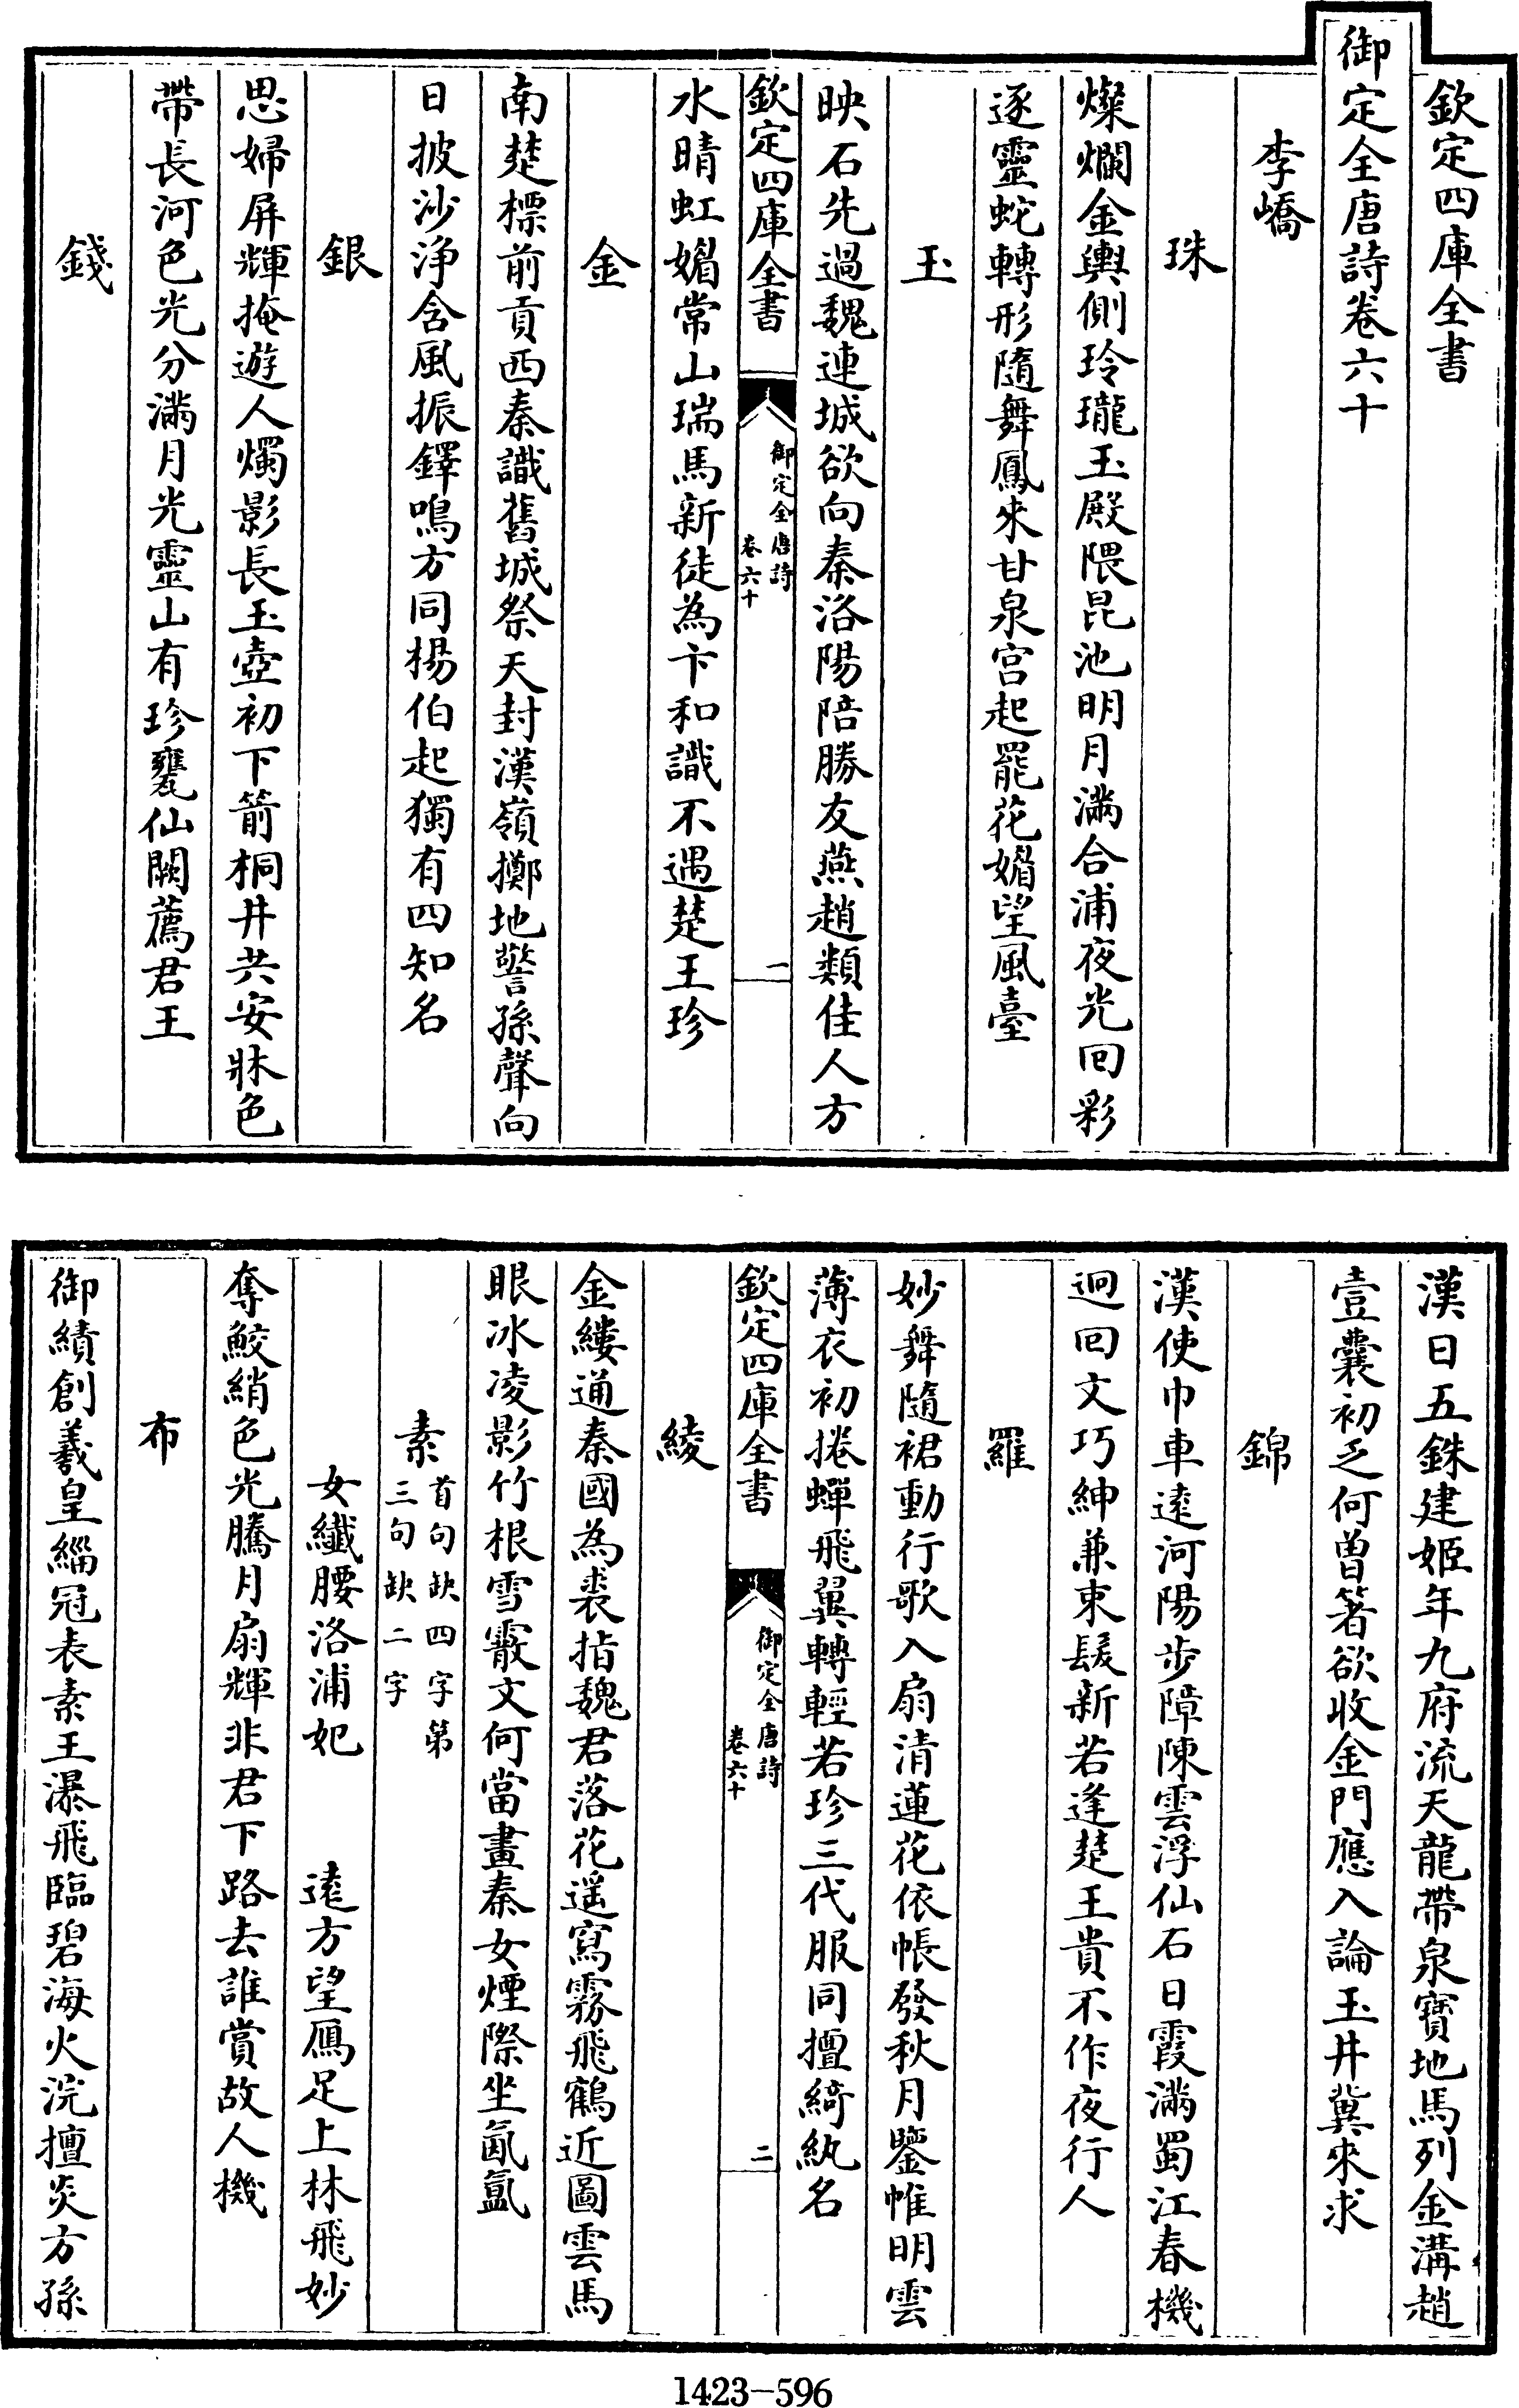 欽定四庫全書
御定全唐詩卷六十
李嶠
珠
燦爛金輿側玲瓏玉殿隈昆池明月滿合浦夜光回彩
逐靈蛇轉形隨舞鳳來甘泉宮起罷花媚望風臺
玉
映石先過魏連城欲向秦洛陽陪勝友燕趙類佳人方
欽定四庫全書
御定全唐詩
卷六十
一
水晴虹媚常山瑞馬新徒為卞和識不遇楚王珍
金
南楚標前貢西秦識舊城祭天封漢嶺擲地警孫聲向
日披沙淨含風振鐸鳴方同楊伯起獨有四知名
銀
思婦屏輝掩遊人燭影長玉壺初下箭桐井共安牀色
帶長河色光分滿月光靈山有珍甕仙闕薦君王
錢
漢日五銖建姬年九府流天龍帶泉寶地馬列金溝趙
壹囊初乏何曾箸欲收金門應入論玉井冀來求
錦
漢使巾車遠河陽步障陳雲浮仙石日霞滿蜀江春機
迥回文巧紳兼束髮新若逢楚王貴不作夜行人
羅
妙舞隨裙動行歌入扇清蓮花依帳發秋月鑒帷明雲
薄衣初捲蟬飛翼轉輕若珍三代服同擅綺紈名
欽定四庫全書
御定全唐詩
卷六十
二
綾
金縷通秦國為裘指魏君落花遥寫霧飛鶴近圖雲馬
眼冰凌影竹根雪霰文何當畫秦女煙際坐氤氳
素首句缺四字第
三句缺二字
女纖腰洛浦妃　　遠方望鴈足上林飛妙
奪鮫綃色光騰月扇輝非君下路去誰賞故人機
布
御績創羲皇緇冠表素王瀑飛臨碧海火浣擅炎方孫
1423-596